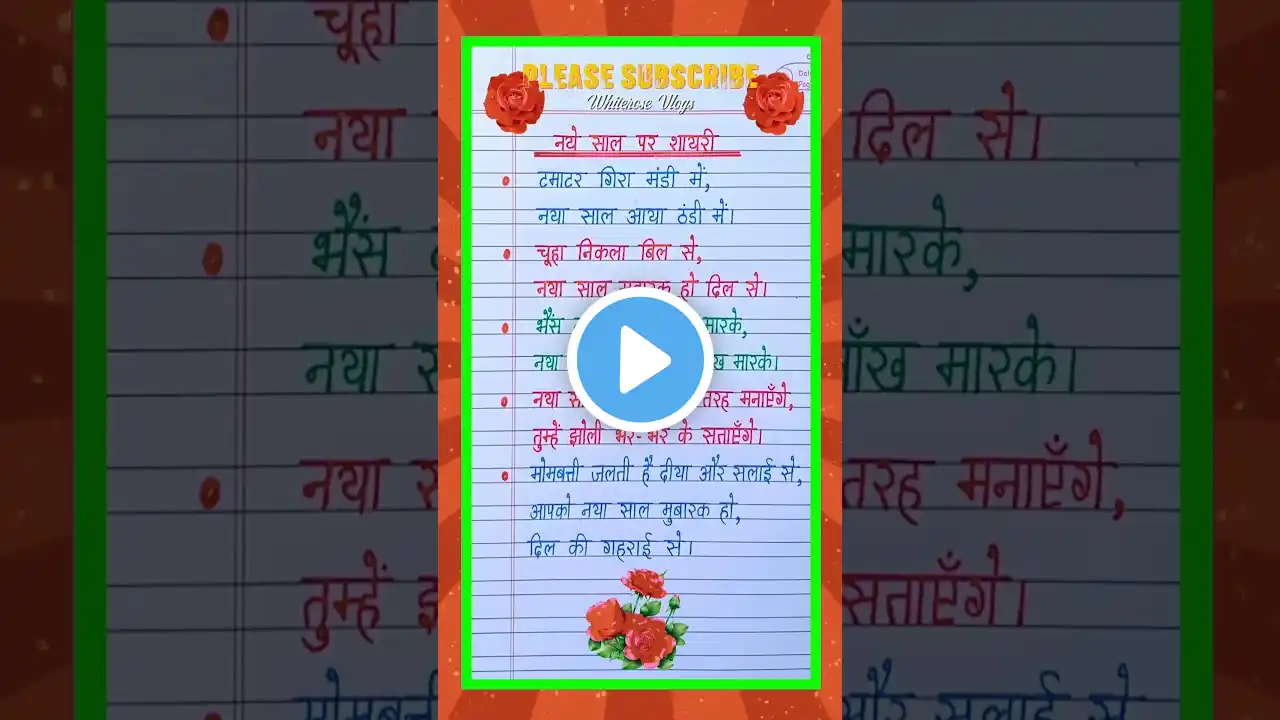 PLEASE SUBSCRIBE
Whiterose Vlogs
नये साल पर शायरी
टमाटर गिरा मंडी में,
नया साल आया ठंडी में।
चूहा निकला बिल से,
नया साल मुबारक हो दिल से।
भैंस मारके,
नया आँख मारके।
नया तरह मनाएँगे,
तुम्हें झोली भर-भर के सताएँगे।
मोमबत्ती जलती है दीया और सलाई से,
आपको नया साल मुबारक हो,
दिल की गहराई से।